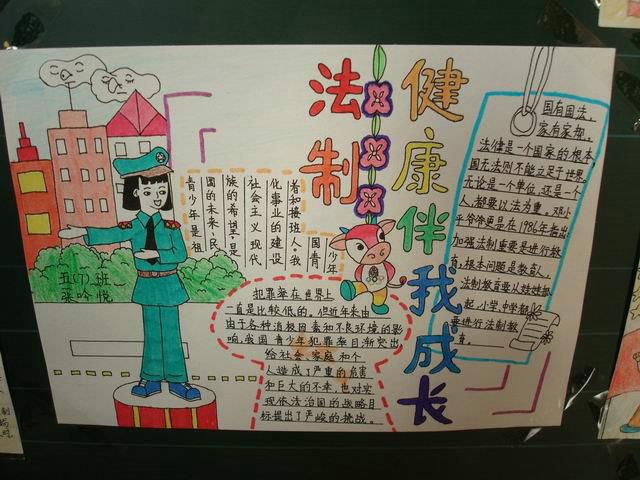 法制
健康伴我成长
青少年是祖
国的未来、民
族的希望，是
社会主义现代
化事业的建设
者和接班人。我
国青
少年
犯罪率在世界上
一直是比较低的。但近年来由
由于各种消极因素和不良环境的影
响,我国青少年犯罪率日渐突出
给社会、家庭和个
人造成了严重的危害
和巨大的不幸，也对实
现依法治国的战略目
标提出了严峻的挑战。
国有国法，
家有家规。
法律是一个国家的根本,
国无法则不能立足于世界
无论是一个单位,还是一个
人,都要以法为重。邓小
平爷爷更是在1986年指出
加强法制重要是进行教
育,根本问题是教育
法制教育要从娃娃抓
起,小学、中学都
要进行法制教
育。
五(7)班
张吟悦